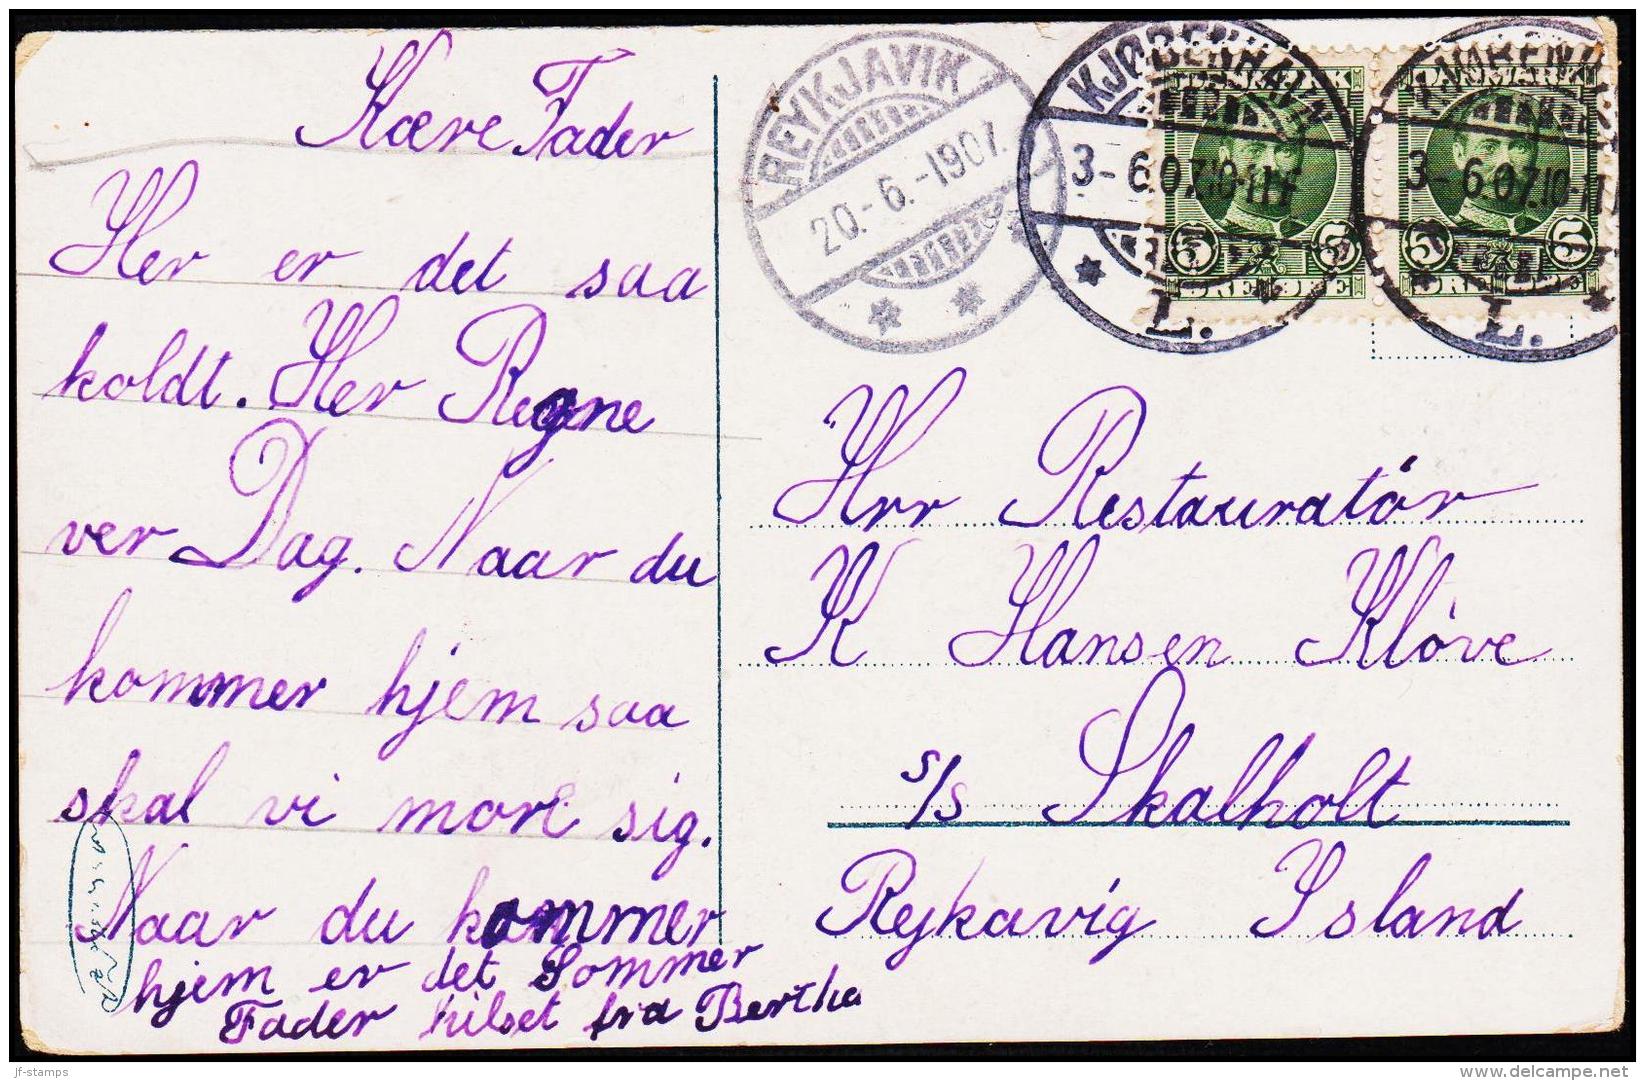 Kære Fader
Her er det saa
koldt. Her Regne
ver Dag. Naar du
kommer hjem saa
skal vi more sig.
Naar du kommer
hjem er det Sommer
Fader hilset fra Bertha
REYKJAVIK
20.-6.-1907.
KJØBENHAVN
3-6.07.10-11F
L.
DANMARK
5 5
ØRE
KJØBENHAVN
3-6.07.10-11F
L.
DANMARK
5 5
ØRE
Hrr Restauratór
K Hansen Klóve
s/s Skalholt
Reykavig Island
jf-stamps
www.delcampe.net